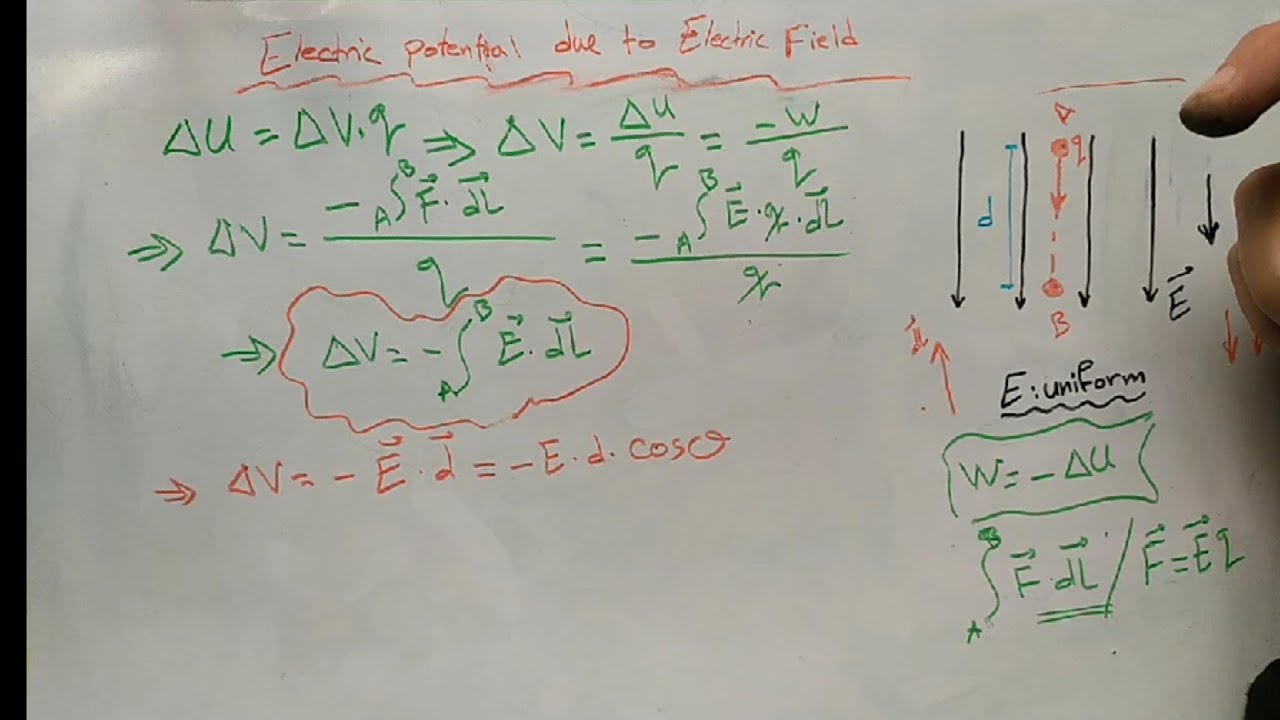 Electric potential due to Electric Field
ΔU = ΔV·q ⇒ ΔV = ΔU/q = -W/q
⇒ ΔV = -A∫B F⃗·dL⃗ / q = -A∫B E⃗·q·dL⃗ / q
⇒ ΔV = -A∫B E⃗·dL⃗
⇒ ΔV = -E⃗·d⃗ = -E·d·cosθ
A
q
d
B
E⃗
E: uniform
W = -ΔU
A∫B F⃗·dL⃗ / F⃗ = E⃗q